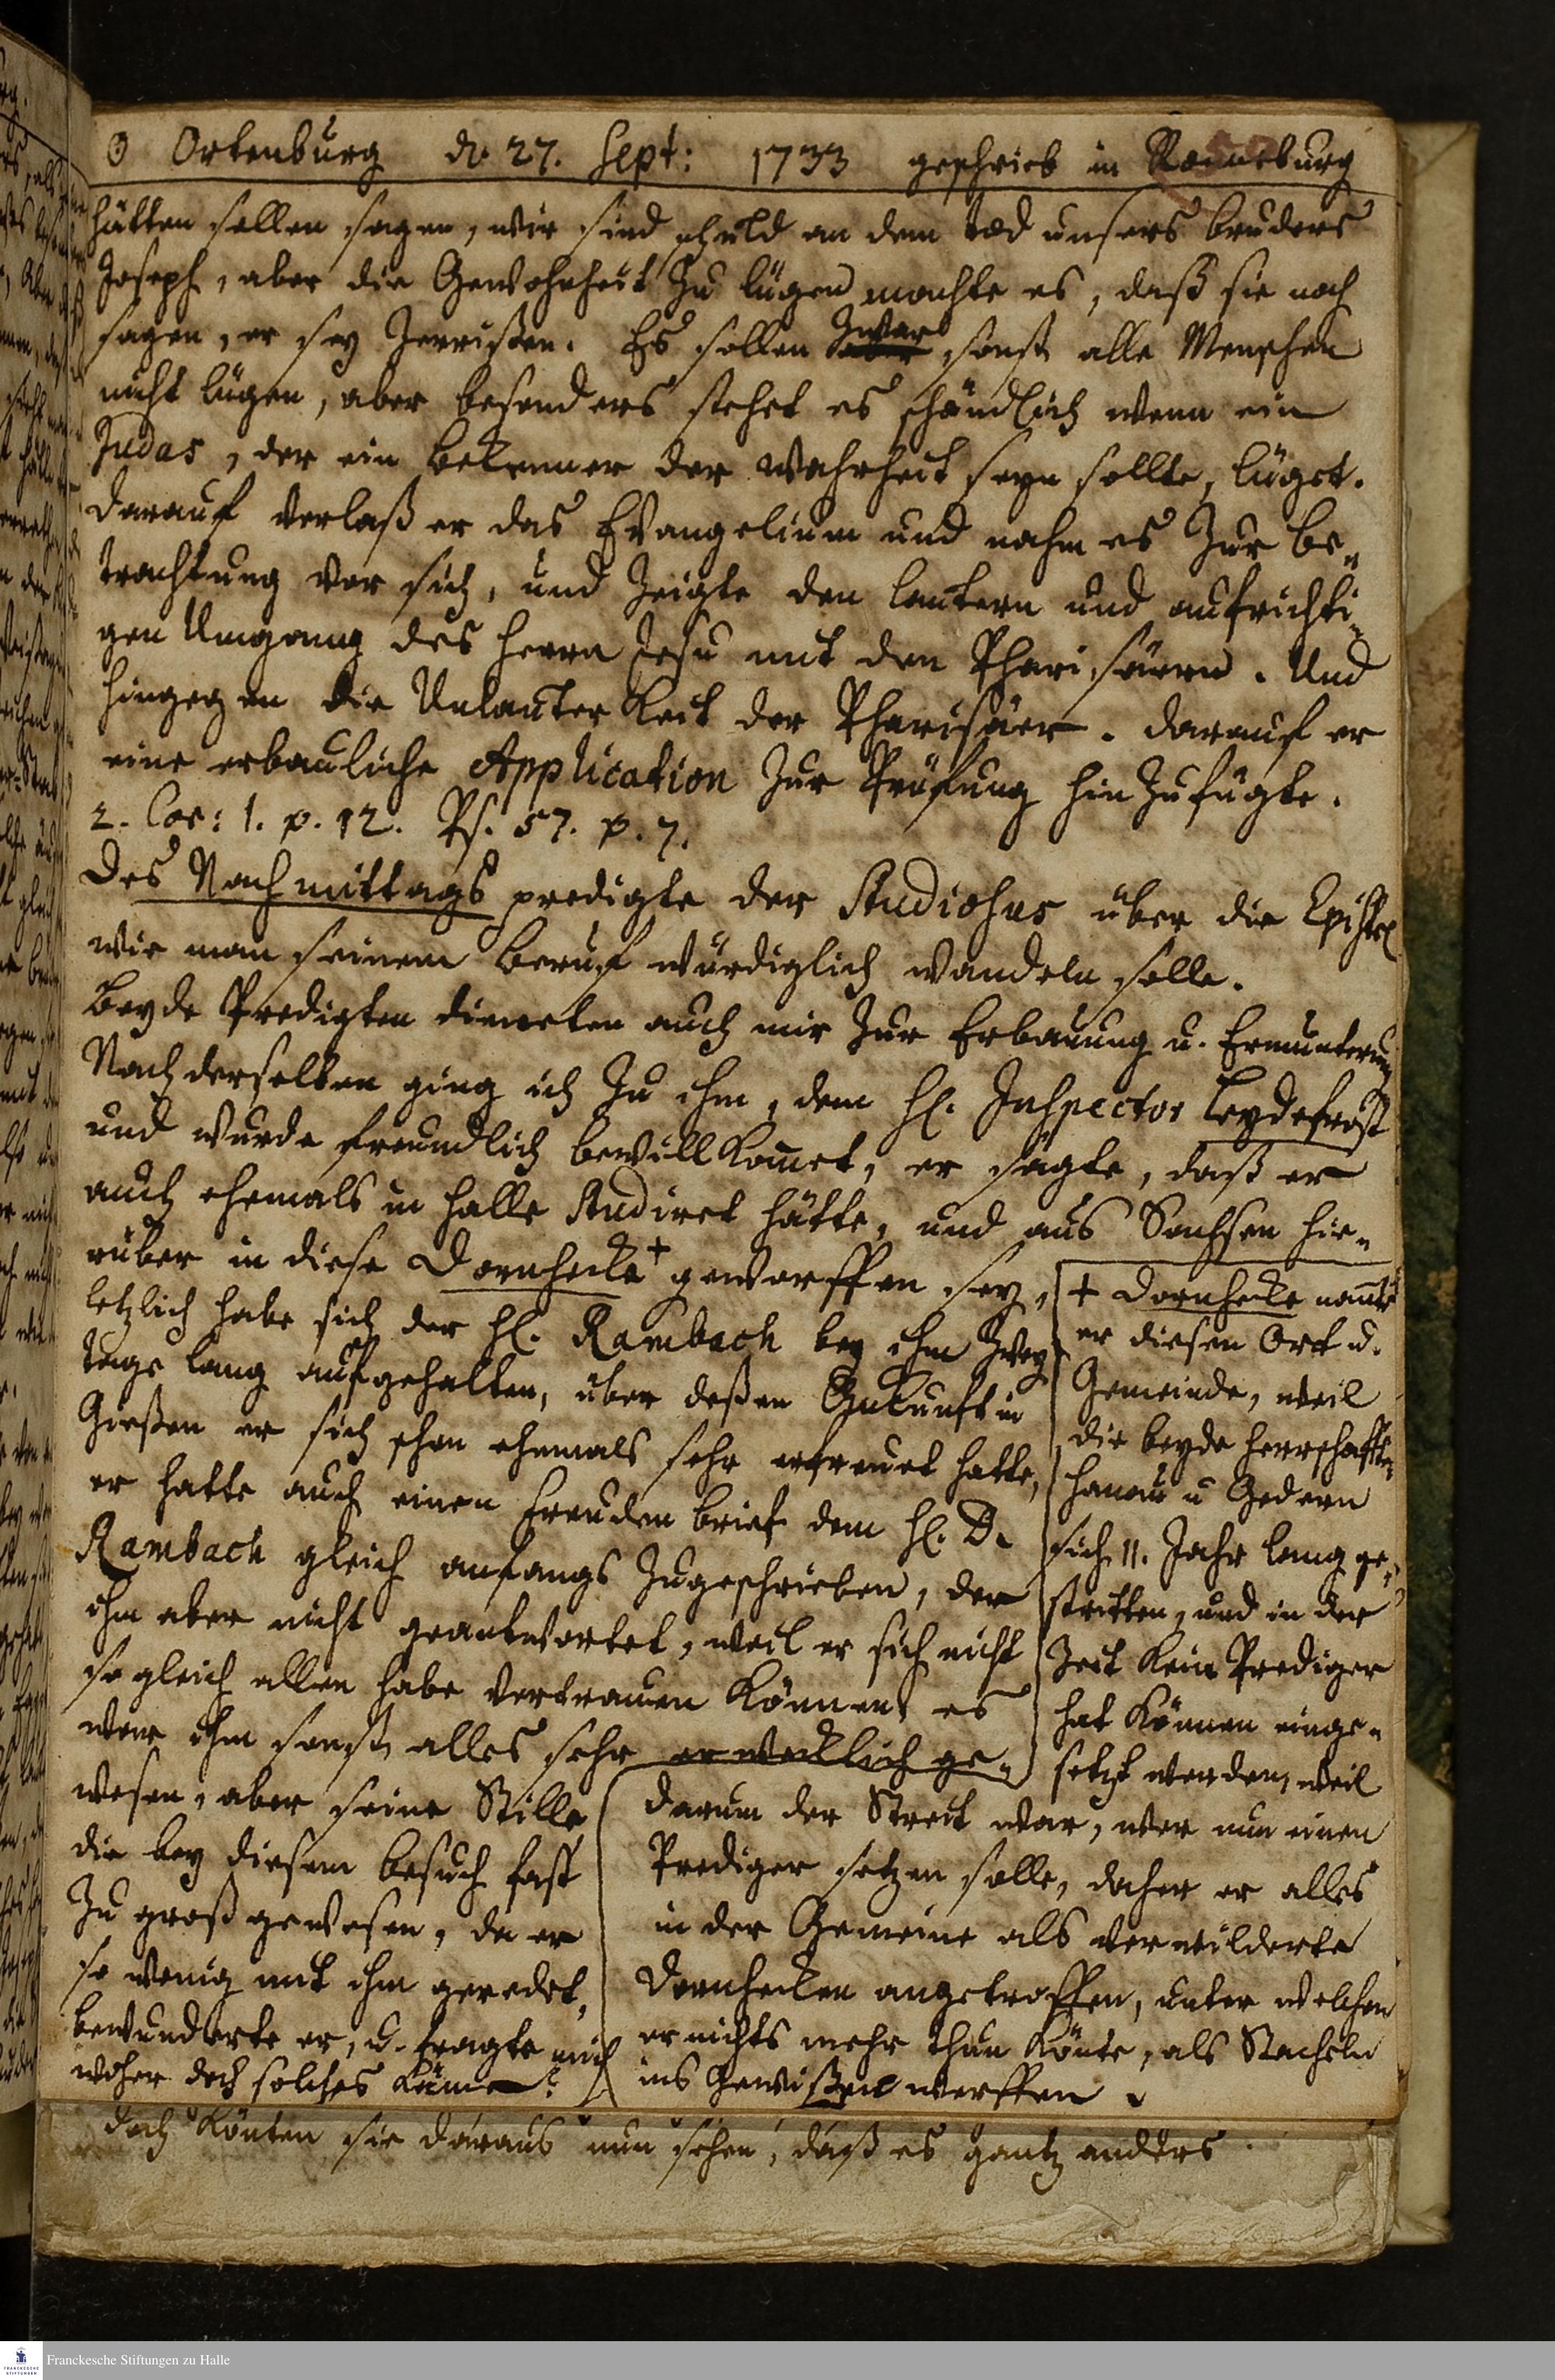 ☉ Ortenburg d. 27. Sept: 1733 geschrieb in Ronneburg
hätten sollen sagen, wir sind schuld an dem tod unsers bruders
Joseph, aber die Gewohnheit zu lügen machte es, daß sie noch
sagen, er sey zerrißen. Es sollen zwar sonst alle Menschen
nicht lügen, aber besonders stehet es schändlich wenn ein
Judas, der ein bekenner der wahrheit seyn sollte, lüget.
darauf verlaß er das Evangelium und nahm es zur be-
trachtung vor sich, und zeigte den lautern und aufrichti-
gen Umgang des Herrn Jesu mit den Pharisäern. Und
hingegen die Unlauterkeit der Pharisäer. darauf er
eine erbauliche Application zur Prüfung hinzufügte.
2. Cor: 1. p. 12. Ps. 57. p. 7.
Des Nachmittags predigte der Studiosus über die Epistel
wie man seinem beruf würdiglich wandeln solle.
beyde Predigten dieneten auch mir zur Erbauung u. Ermunterung
Nach derselben ging ich zu ihm, dem H. Inspector Leydefrost
und wurde freundlich bewillkomet, er sagte, daß er
auch ehemals in Halle Studiret hätte, und aus Sachsen hie-
rüber in diese Dornhecke + geworffen sey,
letzlich habe sich der H. Rambach bey ihm zwey
tage lang aufgehalten, über deßen Ankunft in
Gießen er sich schon ehemals sehr erfreuet hatte,
er hatte auch einen Freuden brief dem H. D.
Rambach gleich anfangs zugeschrieben, der
ihm aber nicht geantwortet, weil er sich nicht
so gleich allen habe vertrauen können es
were ihm sonst alles sehr erwecklich ge-
wesen, aber seine Stille
die bey diesem besuch fast
zu groß gewesen, da er
so wenig mit ihm geredet,
bewunderte er, u. fragte mich
woher doch solches käme?
+ Dornhecke nante
er diesen Ort u.
Gemeinde, weil
die beyde Herrschafften
Hanau u Gedern
sich 11. Jahr lang ge-
stritten, und in der
Zeit kein Prediger
hat können einge-
setzt werden, weil
darum der Streit war, wer nun einen
Prediger setzen solle, daher er alles
in der Gemeine als verwilderte
Dornhecken angetroffen, unter welchen
er nichts mehr thun könte, als Stacheln
ins Gewißen werffen.
doch könten sie daraus nun sehen, daß es gantz anders
Franckesche Stiftungen zu Halle